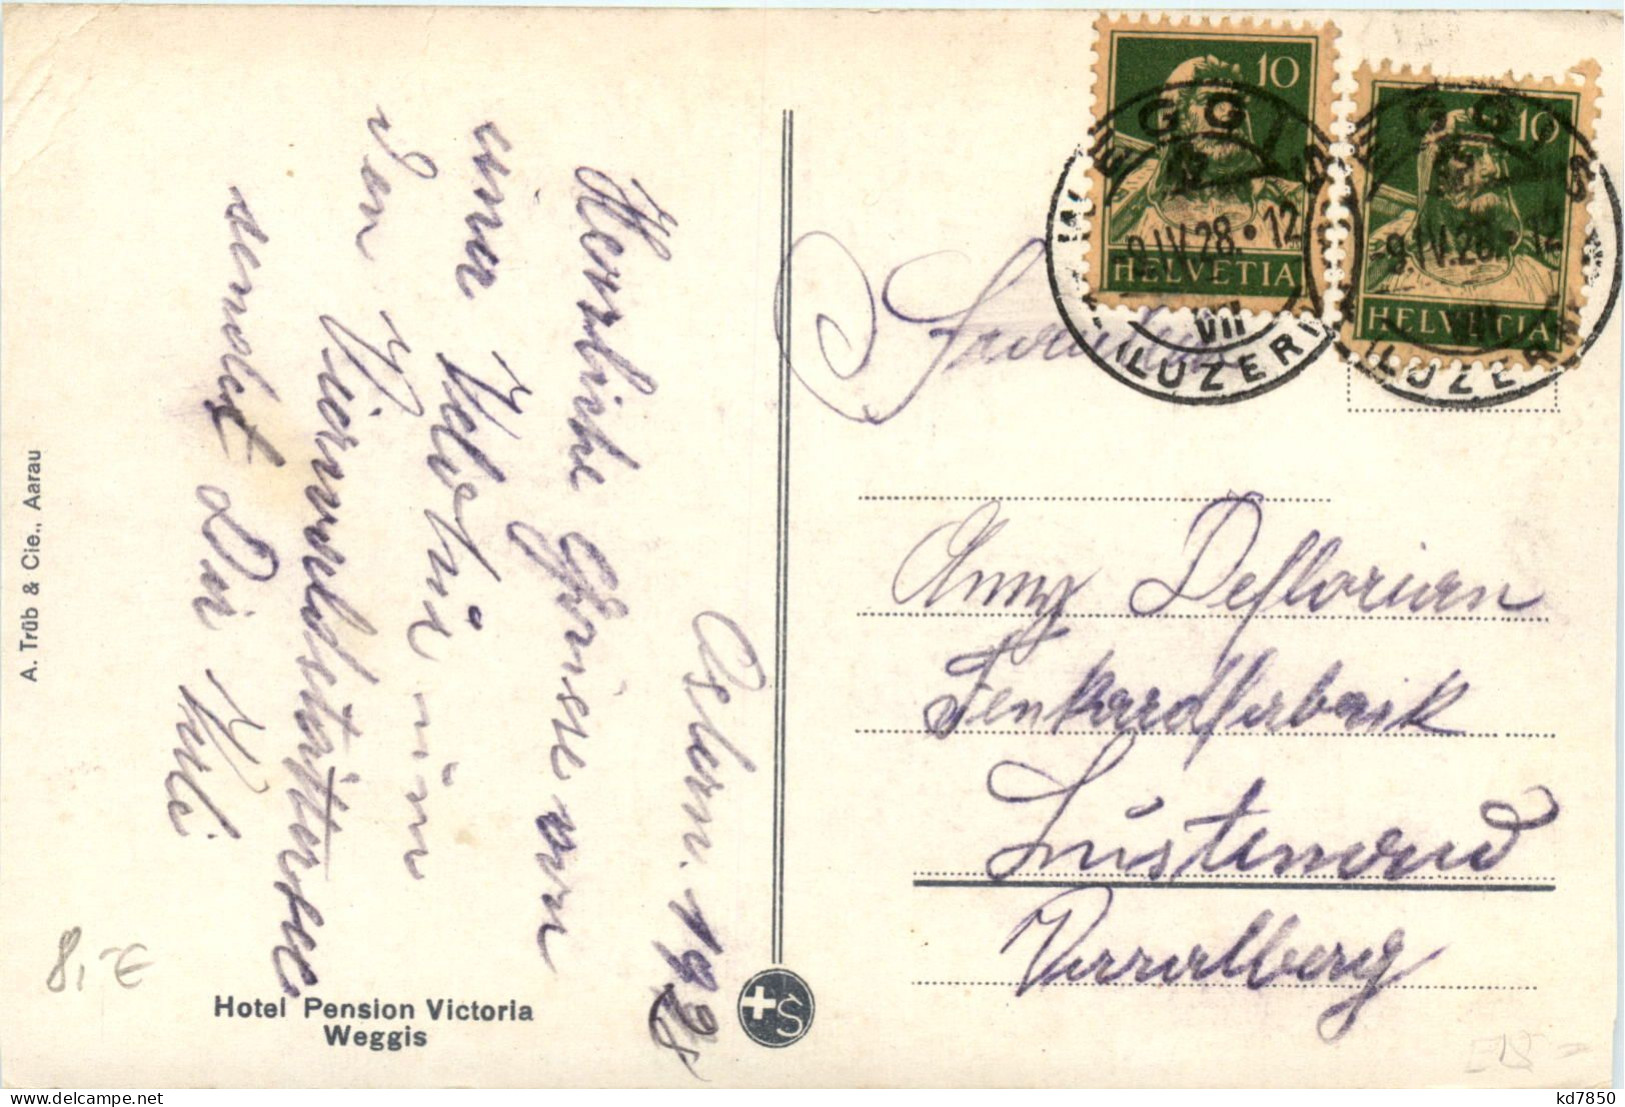 Ostern. 1928
Herzliche Grüsse von
einer
den Vierwaldstättersee
sendet Dir
A. Trüb & Cie., Aarau
8,-€
Hotel Pension Victoria
Weggis
+S
10
HELVETIA
10
HELVETIA
WEGGIS
-9.IV.28.12
VII
(LUZERN)
WEGGIS
-9.IV.28.12
VII
(LUZERN)
Fräulein
Anny Deflorian
Lustenau
Vorarlberg
kd7850